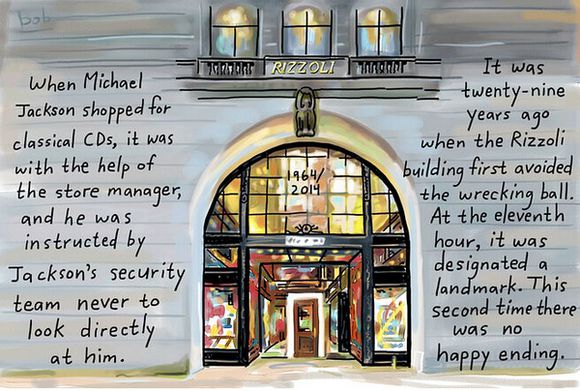 bob
When Michael
Jackson shopped for
classical CDs, it was
with the help of
the store manager,
and he was
instructed by
Jackson's security
team never to
look directly
at him.
RIZZOLI
1964/
2014
It was
twenty-nine
years ago
when the Rizzoli
building first avoided
the wrecking ball.
At the eleventh
hour, it was
designated a
landmark. This
second time there
was no
happy ending.